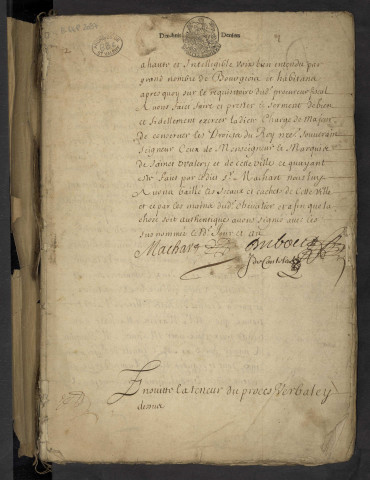 Dix-huit Deniers
a haute et Intelligible voix bien entendu par
grand nombre de Bourgeois et habitans
apres quoy sur le requisitoire dud. procureur fiscal
Avons fait faire et prester le serment de bien
et fidellement exercer la ditte Charge de Majeur
de conserver les Droicts du Roy n̄re souverain
seigneur Ceux de Monseigneur le Marquis
de Sainct Vvalery et de cette Ville ce quayant
Este faict par led. Sr. Machart nous luy
Avons baillé les sceaux et cachets de cette Ville
et ce par les mains dud. chevalier et afin que la
chose soit authentique avons signé avec les
sus nommez led. Jour et an
Machart
Ensuitte la teneur du proces Verbal ey
dessus